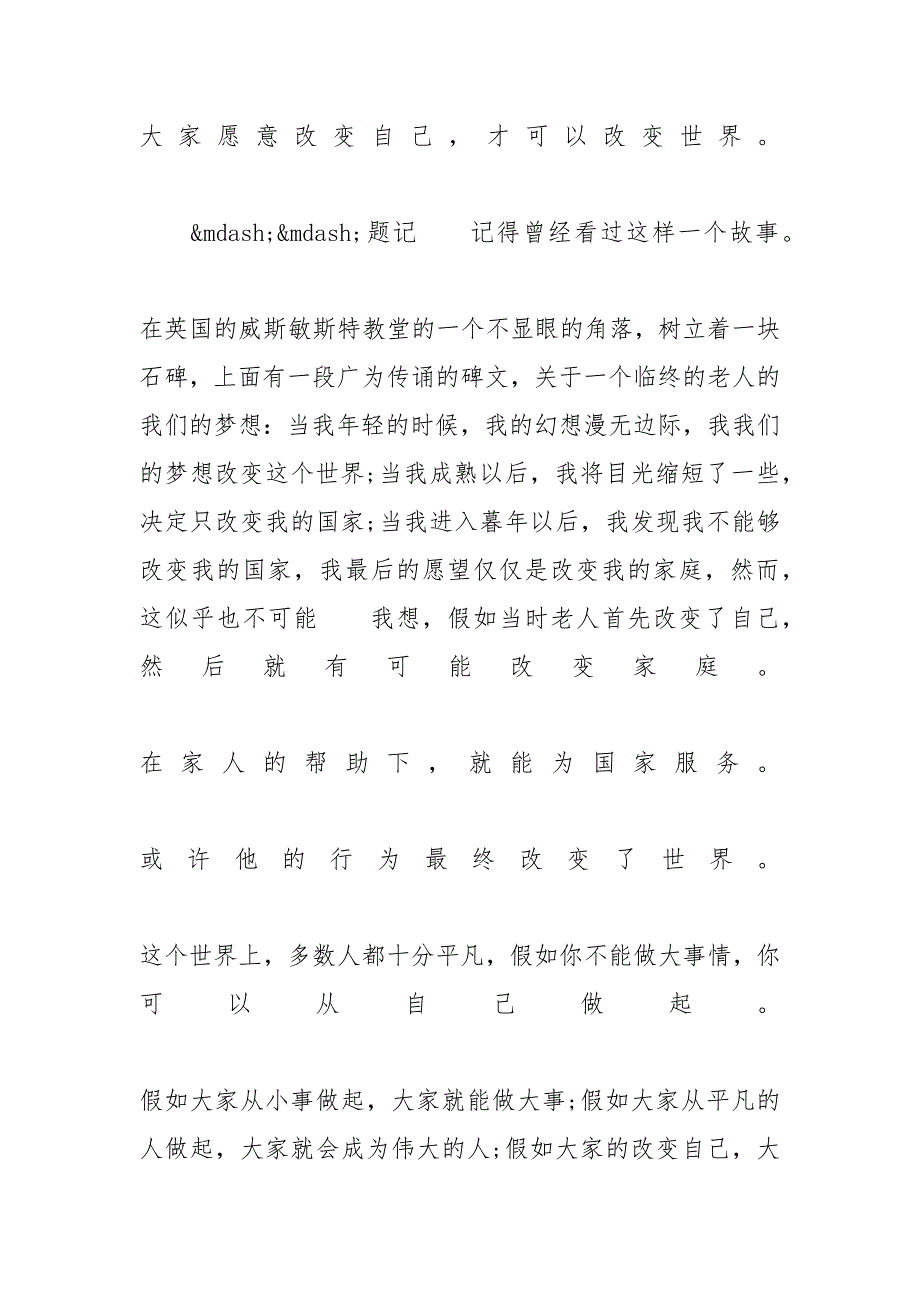 大家愿意改变自己，才可以改变世界。
&mdash;&mdash;题记　　记得曾经看过这样一个故事。
在英国的威斯敏斯特教堂的一个不显眼的角落，树立着一块
石碑，上面有一段广为传诵的碑文，关于一个临终的老人的
我们的梦想：当我年轻的时候，我的幻想漫无边际，我我们
的梦想改变这个世界;当我成熟以后，我将目光缩短了一些，
决定只改变我的国家;当我进入暮年以后，我发现我不能够
改变我的国家，我最后的愿望仅仅是改变我的家庭，然而，
这似乎也不可能　　我想，假如当时老人首先改变了自己，
然后就有可能改变家庭。
在家人的帮助下，就能为国家服务。
或许他的行为最终改变了世界。
这个世界上，多数人都十分平凡，假如你不能做大事情，你
可以从自己做起。
假如大家从小事做起，大家就能做大事;假如大家从平凡的
人做起，大家就会成为伟大的人;假如大家的改变自己，大